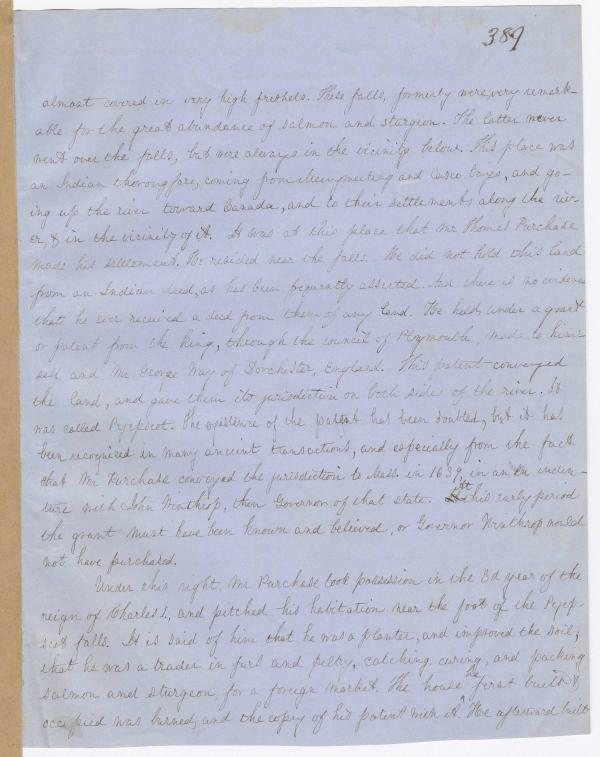 389
almost covered in very high freshets. These falls, formerly were, very remark-
able for the great abundance of salmon and sturgeon. The latter never
went over the falls, but were always in the vicinity below. This place was
an Indian thoroughfare, coming from Merrymeeting and Casco bays, and go-
ing up the river toward Canada, and to their settlements along the riv-
er, & in the vicinity of it. It was at this place that Mr Thomas Purchase
made his settlement. He resided near the falls. He did not hold this land
from an Indian deed, as has been frequently asserted. And there is no evidence
that he ever received a deed from them of any land. He held, under a grant
or patent from the king, through the council of Plymouth, made to him-
self and Mr George Way of Dorchester, England. This patent conveyed
the land, and gave them its jurisdiction on both sides of the river. It
was called Pejepscot. The existence of the patent has been doubted, but it has
been recognised in many ancient transactions, and especially from the fact
that Mr Purchase conveyed the jurisdiction to Mass. in 1639, in an inden-
ture with John Winthrop, then Governor of that state. At this early period
the grant must have been known and believed, or Governor Winthrop would
not have purchased.
Under this right, Mr Purchase took possession in the 3d year of the
reign of Charles I., and pitched his habitation near the foot of the Pejep-
scot falls. It is said of him that he was a planter, and improved the soil;
that he was a trader in furs and peltry, catching, curing, and packing
salmon and sturgeon for a foreign market. The house he first built &
occupied was burned, and the copy of his patent with it. He afterward built